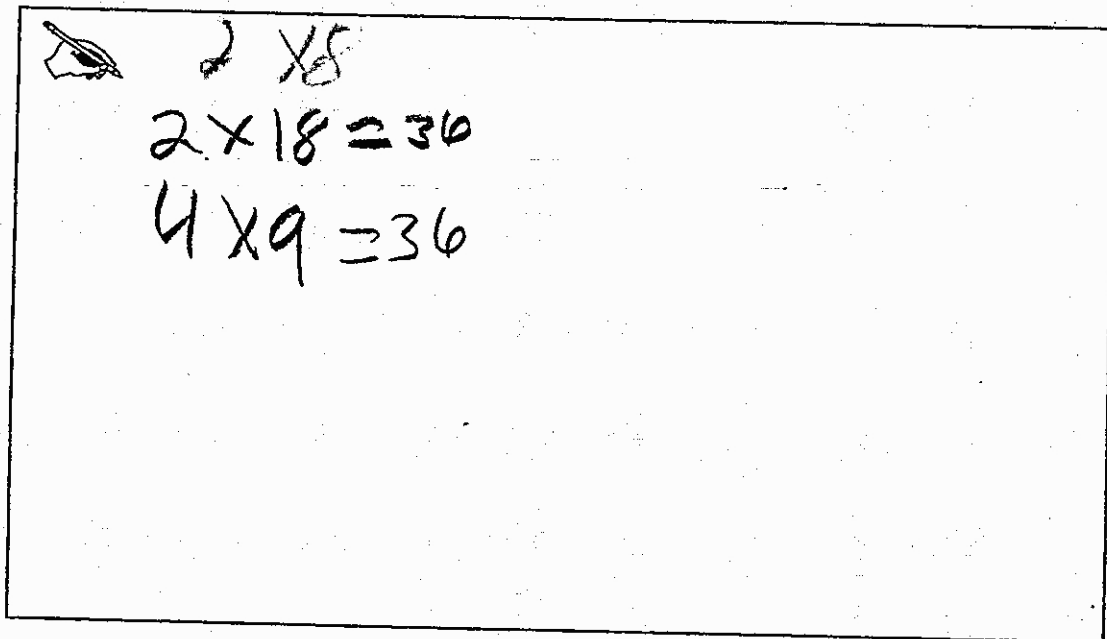 2 x8
2 x 18 = 36
4 x 9 = 36